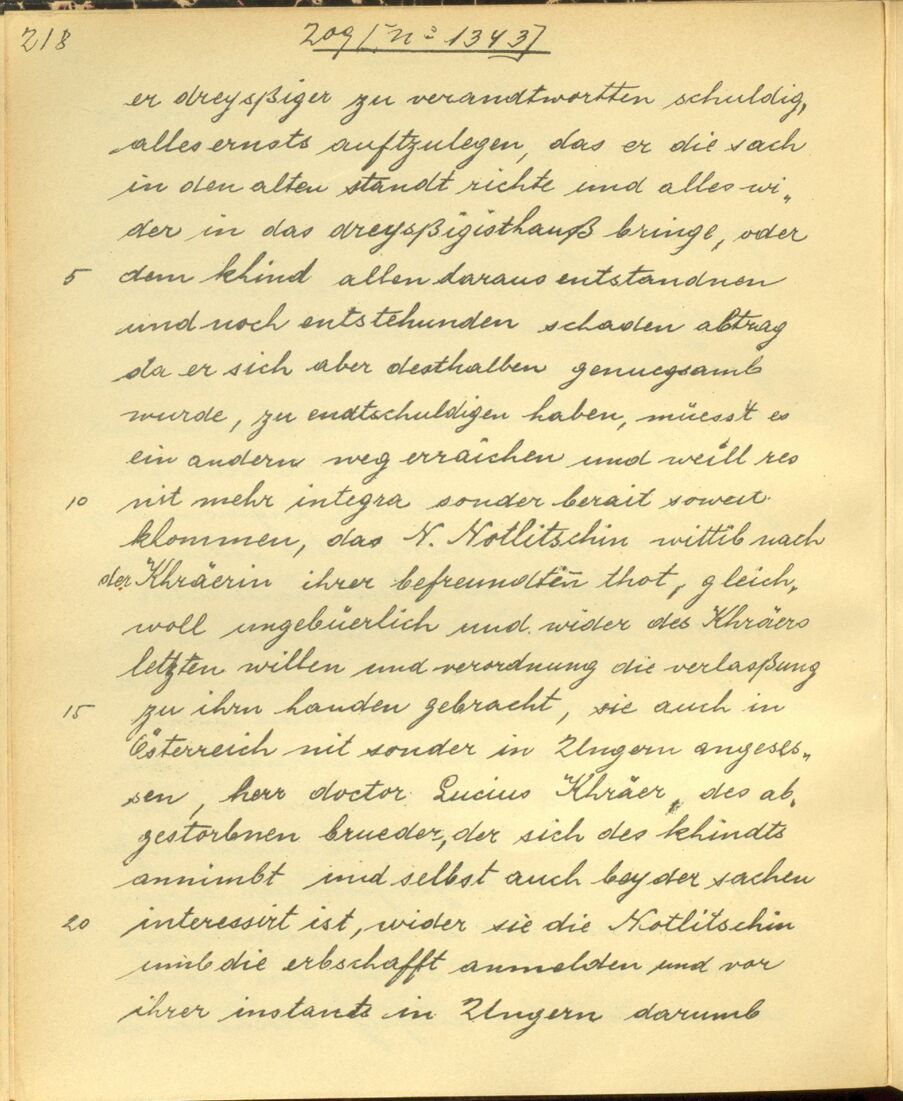 218
209 [N° 1343]
er dreysßiger zu verandtwortten schuldig,
alles ernsts auftzulegen, das er die sach
in den alten standt richte und alles wi„
der in das dreysßigisthauß bringe, oder
5 dem khind allen daraus entstandnen
und noch entstehunden schaden abtrag
da er sich aber desthalben genuegsamb
wurde, zu endtschuldigen haben, müesst es
ein andern weg erraichen und weill res
10 nit mehr integra sonder berait soweit
khommen, das N. Notlitschin wittib nach
der Khräerin ihrer befreundten thot, gleich„
woll ungebüerlich und wider des Khräers
letzten willen und verordnung die verlasßung
15 zu ihrn handen gebracht, sie auch in
Österreich nit sonder in Ungern angeses„
sen, herr doctor Lucius Khräer, des ab„
gestorbnen brueder, der sich des khindts
annimbt und selbst auch bey der sachen
20 interessirt ist, wider sie die Notlitschin
umb die erbschafft anmelden und vor
ihrer instants in Ungern darumb